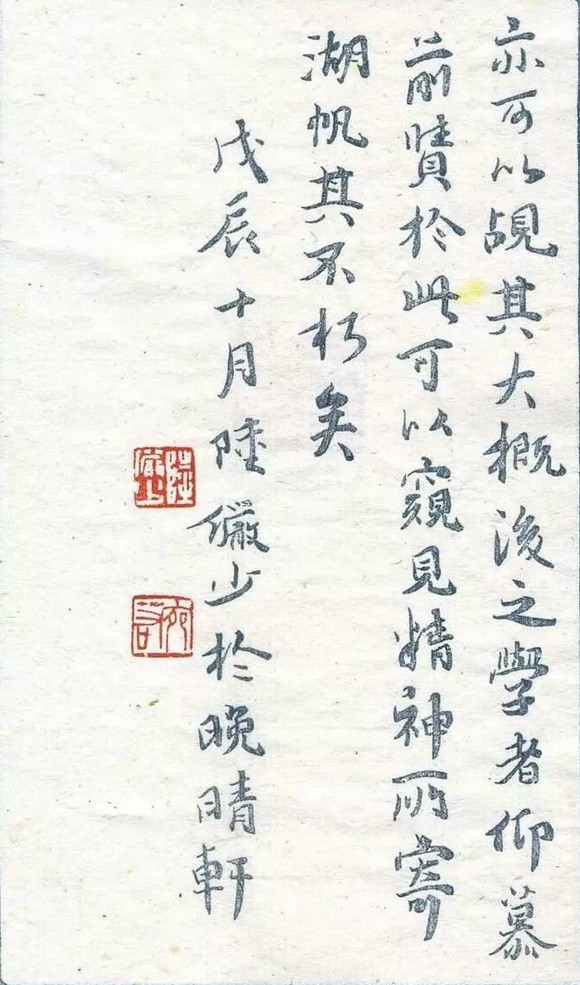 亦可以覘其大概後之學者仰慕
前賢於此可以窺見精神所寄
湖帆其不朽矣
戊辰十月陸儼少於晚晴軒
陸儼少
宛若